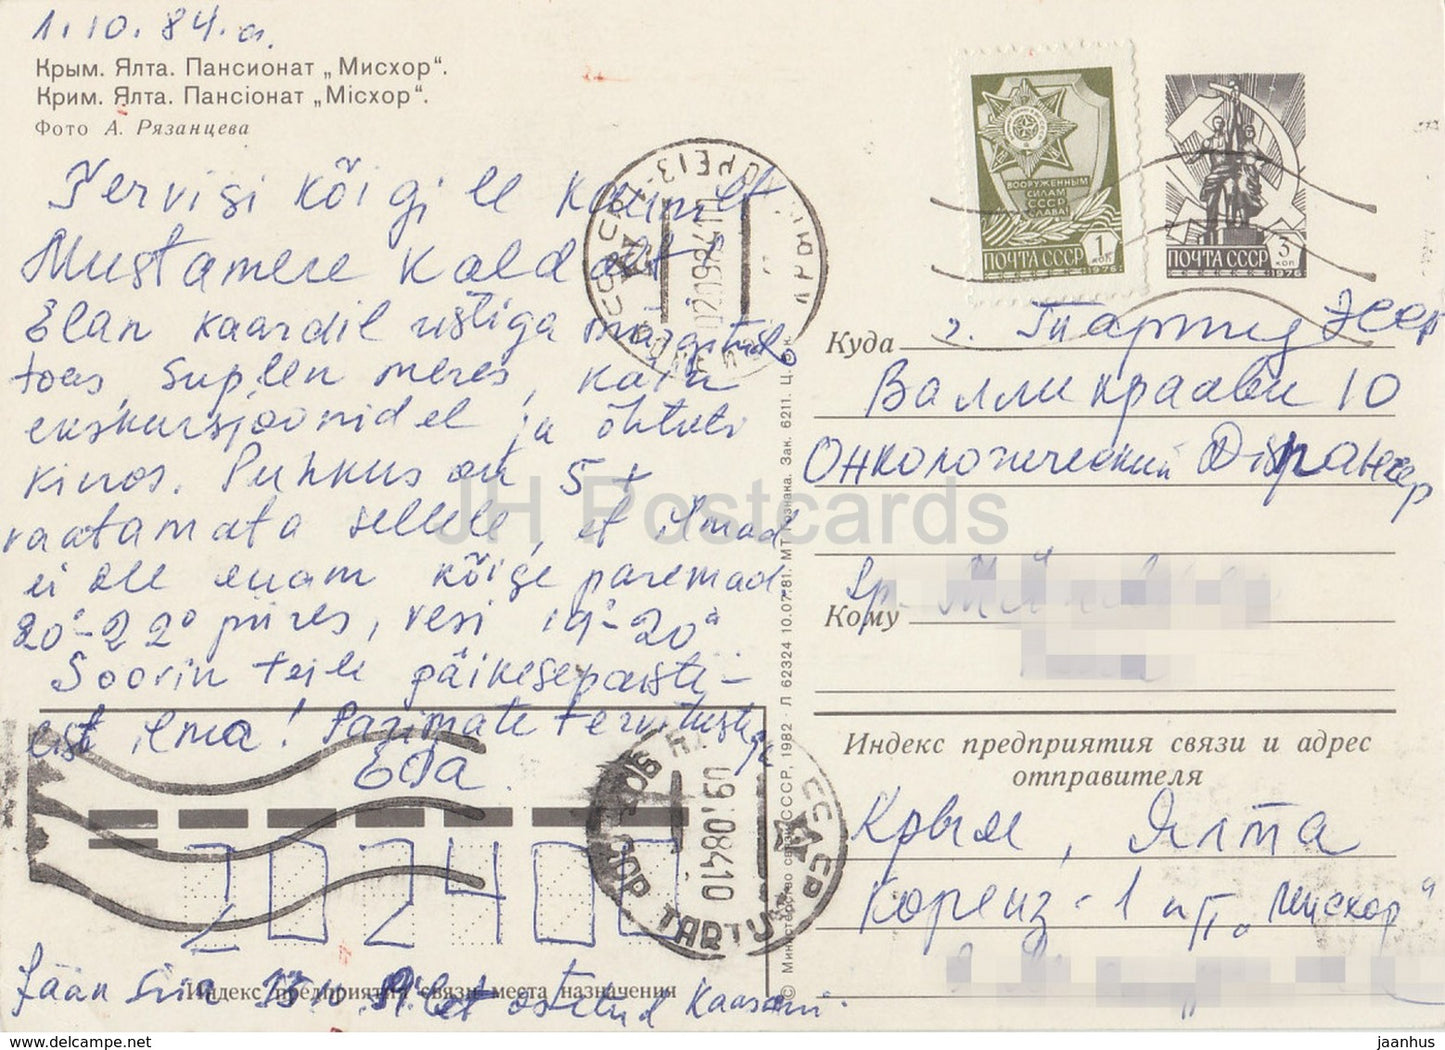 1.10.84.a.
Крым. Ялта. Пансионат „Мисхор“.
Крим. Ялта. Пансіонат „Місхор“.
Фото А. Рязанцева
Tervisi kõigile kaunilt
Mustamere kaldalt
Elan kaardil ristiga märgitud
toas, Suplen meres, käin
ekskursjoonidel ja õhtuti
kinos. Puhkus on 5+
vaatamata sellele, et ilmad
ei ole enam kõige paremad.
20°-22° piires, vesi 19°-20°
Soovin teile päikesepaist-
est ilma! Parimate tervitustega
Eda.
Jään siia 13
Pilet ostetud
ВООРУЖЕННЫМ
СИЛАМ
СССР
СЛАВА!
1 КОП
ПОЧТА СССР
1976
ПОЧТА СССР
3 КОП
1976
Куда г. Тарту ЭССР
Валликраави 10
Онкологический Диспансер
Кому
Индекс предприятия связи и адрес
отправителя
Крым, Ялта
Кореиз-1 п/п. „Мисхор“
TARTU
202400
Индекс предприятия связи места назначения
© Министерство связи СССР, 1982 · Л 62324 10.07.81. МТ Гознака. Зак. 6211. Ц. 6 к.
JH Postcards
www.delcampe.net
jaanhus